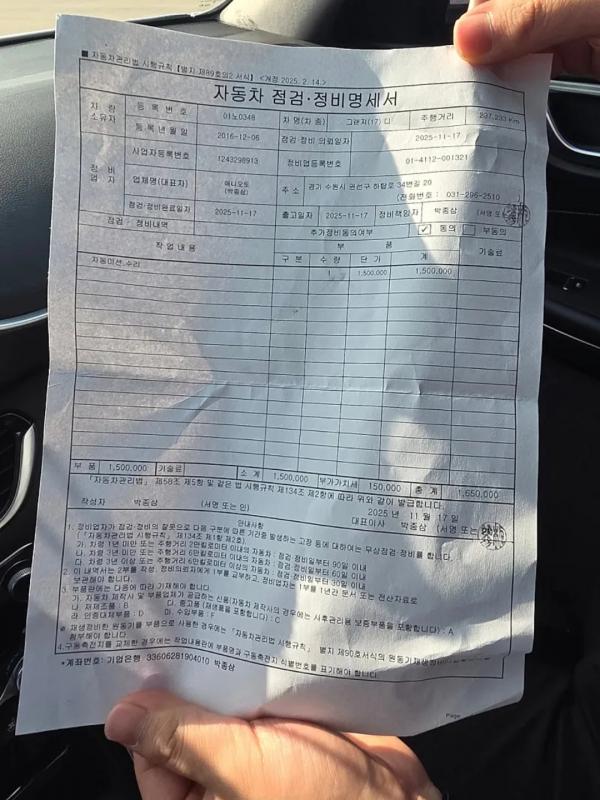 ■ 자동차관리법 시행규칙 [별지 제89호의2 서식] <개정 2025. 2. 14.>
자동차 점검·정비명세서
차량 소유자 등록번호 01노0348 차명(차종) 그랜저(17) 디 주행거리 237,233 Km
등록년월일 2016-12-06 점검·정비 의뢰일자 2025-11-17
정비업자 사업자등록번호 1243298913 정비업등록번호 01-4112-001321
업체명(대표자) 애니오토 (박종삼) 주소 경기 수원시 권선구 하탑로 34번길 20
(전화번호 : 031-296-2510
점검·정비완료일자 2025-11-17 출고일자 2025-11-17 정비책임자 박종삼 (서명 또는
점검·정비내역 추가정비동의여부 ✓ 동의 부동의
작업내용 부품 기술료
구분 수량 단가 계
자동미션.수리 1 1,500,000 1,500,000
부품 1,500,000 기술료 소계 1,500,000 부가가치세 150,000 총계 1,650,000
「자동차관리법」 제58조 제5항 및 같은 법 시행규칙 제134조 제2항에 따라 위와 같이 발급합니다.
2025년 11월 17일
작성자 박종삼 (서명 또는 인) 대표이사 박종삼 (서명 또는
안내사항
1. 정비업자가 점검·정비의 잘못으로 다음 구분에 따른 기준일 발생하는 고장 등에 대하여는 무상점검·정비를 합니다.
(「자동차관리법 시행규칙」 제134조 제1항 제2호)
가. 차령 1년 미만 또는 주행거리 2만킬로미터 이내의 자동차 : 점검·정비일부터 90일 이내
나. 차령 3년 미만 또는 주행거리 6만킬로미터 이내의 자동차 : 점검·정비일부터 60일 이내
다. 차령 3년 이상 또는 주행거리 6만킬로미터 이상의 자동차 : 점검·정비일부터 30일 이내
2. 이 내역서는 2부를 작성, 정비의뢰자에게 1부를 교부하고, 정비업자는 1부를 1년간 문서 또는 전산자료로
보관해야 합니다.
3. 부품란에는 다음에 따라 기재해야 합니다.
가. 자동차 제작사 및 부품업체가 공급하는 신품(자동차 제작사의 경우에는 사후관리용 보증부품을 포함합니다) : A
나. 재제조품 : B 다. 중고품 (재생품을 포함합니다) : C
라. 인증대체부품 : D 마. 수입부품 : F
※ 재생정비한 원동기를 부품으로 사용한 경우에는 「자동차관리법 시행규칙」 별지 제90호서식의 원동기재생정비
첨부해야 합니다.
4. 구동축전지를 교체한 경우에는 작업내용란에 부품명과 구동축전지 식별번호를 표기해야 합니다.
*계좌번호: 기업은행 33606281904010 박종삼
Page